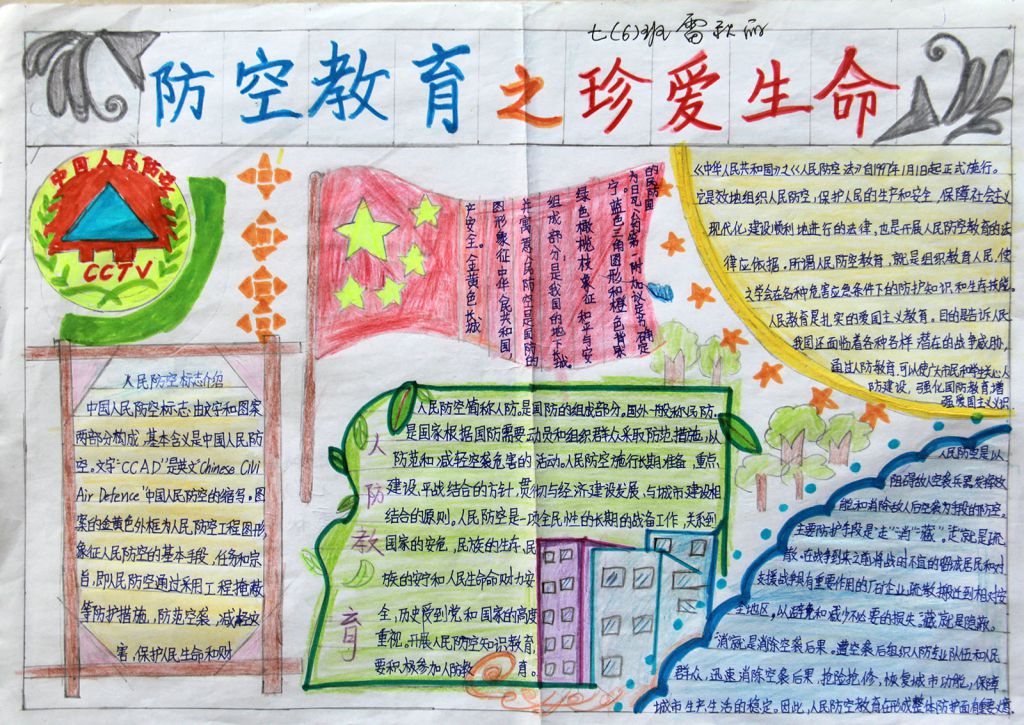 七(6)班 雷秋丽
防空教育之珍爱生命
中国人民防空
CCTV
人民防空标志介绍
中国人民防空标志,由文字和图案
两部分构成,基本含义是中国人民防
空。文字"CCAD"是英文"Chinese Civil
Air Defence"中国人民防空的缩写。图
案的金黄色外框为人民防空工程图形,
象征人民防空的基本手段、任务和宗
旨,即人民防空通过采用工程掩蔽
等防护措施,防范空袭、减轻灾
害,保护人民生命和财
产安全。金黄色长城
图形象征中华人民共和国,
并寓意人民防空是国防的
组成部分,是我国的地下长城
绿色橄榄枝象征和平与安
宁。蓝色三角图形和橙色背景
为日内瓦公约第一附加议定书确定
的民防国
《中华人民共和国》之《人民防空法》自1997年1月1日起正式施行。
它是效地组织人民防空,保护人民的生产和安全,保障社会主义
现代化建设顺利地进行的法律,也是开展人民防空教育的法
律应依据,所谓人民防空教育,就是组织教育人民,使
之学会在各种危害应急条件下的防护知识和生存技能。
人民教育是扎实的爱国主义教育。目的是告诉人民
我国还面临着各种各样潜在的战争威胁,
通过人防教育,可以使广大市民和学生关心人
防建设,强化国防教育增
强爱国主义识
人防教育
人民防空简称人防。是国防的组成部分。国外一般称民防。
是国家根据国防需要,动员和组织群众采取防范措施,从
防范和减轻空袭危害的活动。人民防空施行长期准备,重点
建设,平战结合的方针,贯彻与经济建设发展、与城市建设相
结合的原则。人民防空是一项全民性的长期的战备工作,关系到
国家的安危,民族的生存、民
族的安宁和人民生命财力安
全,历史受到党和国家的高度
重视。开展人民防空知识教育,
要积极参加人防教育。
人民防空是以
阻碍敌人空袭兵器发挥效
能和消除敌人后空袭为手段的防空。
主要防护手段是"走""消""藏","走"就是疏
散。在战争到来之前,将战时不宜的钢成居民和对
支援战争具有重要作用的厂矿企业,疏散搬迁到相对安
全地区,从以避免和减少必要的损失。"藏"就是隐蔽。
"消"就是消除空袭后果。遭空袭后组织人防专业队伍和人民
群众,迅速消除空袭后果,抢险抢修,恢复城市功能,保障
城市生产生活的稳定。因此,人民防空教育在形成整体防护面有重要义意。